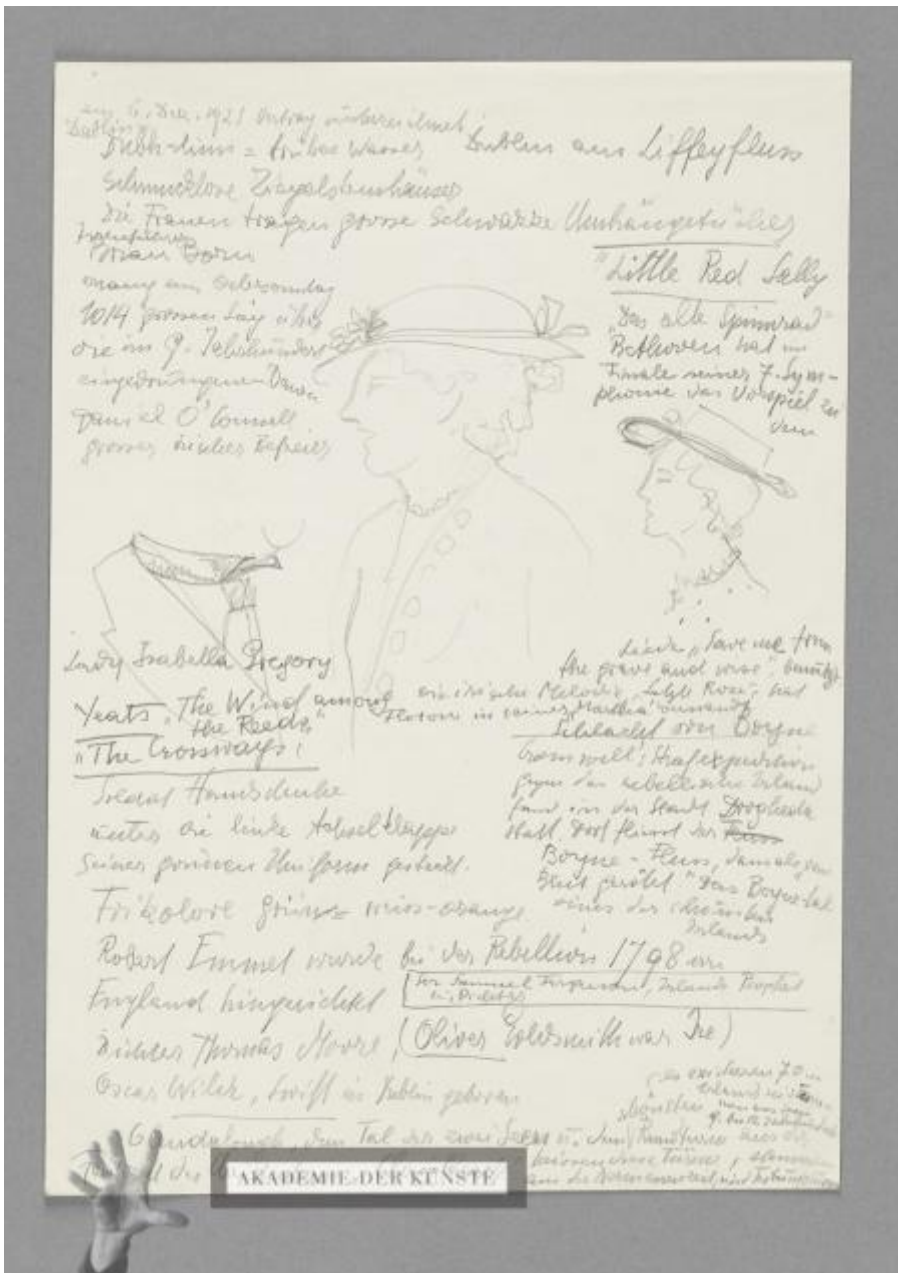 am 6. Dez. 1921 Vertrag unterzeichnet
Dublin
Dubh-linn = trübes Wasser Dublin am Liffeyfluss
Schmucklose Ziegelsteinhäuser
Die Frauen tragen grosse schwarze Umhängetücher
Brian Born
1014 grossen Sieg über
die im 9. Jahrhundert
eingedrungenen Dänen
Daniel O'Connell
grosser irischer Befreier
"Little Red Sally
"Das alte Spinnrad"
Bethoven hat im
Finale seiner 7. Sym-
phonie das Vorspiel zu
Lady Isabella Gregory
Yeats "The Wind among
the Reeds"
"The Crossways"
Lieder "Save me from
the grave and wise", benützt
eine irische Melodie, "Letzte Rose", hat
Flotow in seiner "Martha" verwendet
Schlacht am Boyne
Cromwell: Strafexpedition
gegen das rebellische Irland
fand in der Stadt Drogheda
statt. Dort fliesst der Fluss
Boyne-Fluss, damals von
Blut gerötet "Das Boynetal
eines der schönsten
Irlands
Soldat Handschuhe
unter die linke Achselklappe
seiner grünen Uniform gesteckt.
Trikolore grün-weiss-orange
Robert Emmet wurde bei der Rebellion 1798 von
England hingerichtet
Sir Samuel Ferguson, Irlands Prophet
u. Dichter
Dichter Thomas Moore, (Oliver Goldsmith war Ire)
Oscar Wilde, Swift in Dublin geboren
es existieren 70 in
Glendalough, dem Tal der zwei Seen u. dem Rundturm aus der
AKADEMIE DER KÜNSTE